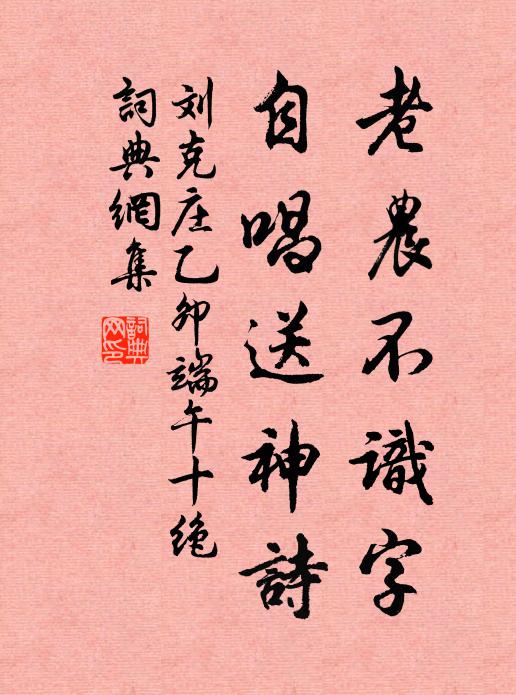 老農不識字
自唱送神詩
刘克庄乙卯端午十绝
詞典網集
詞典網印